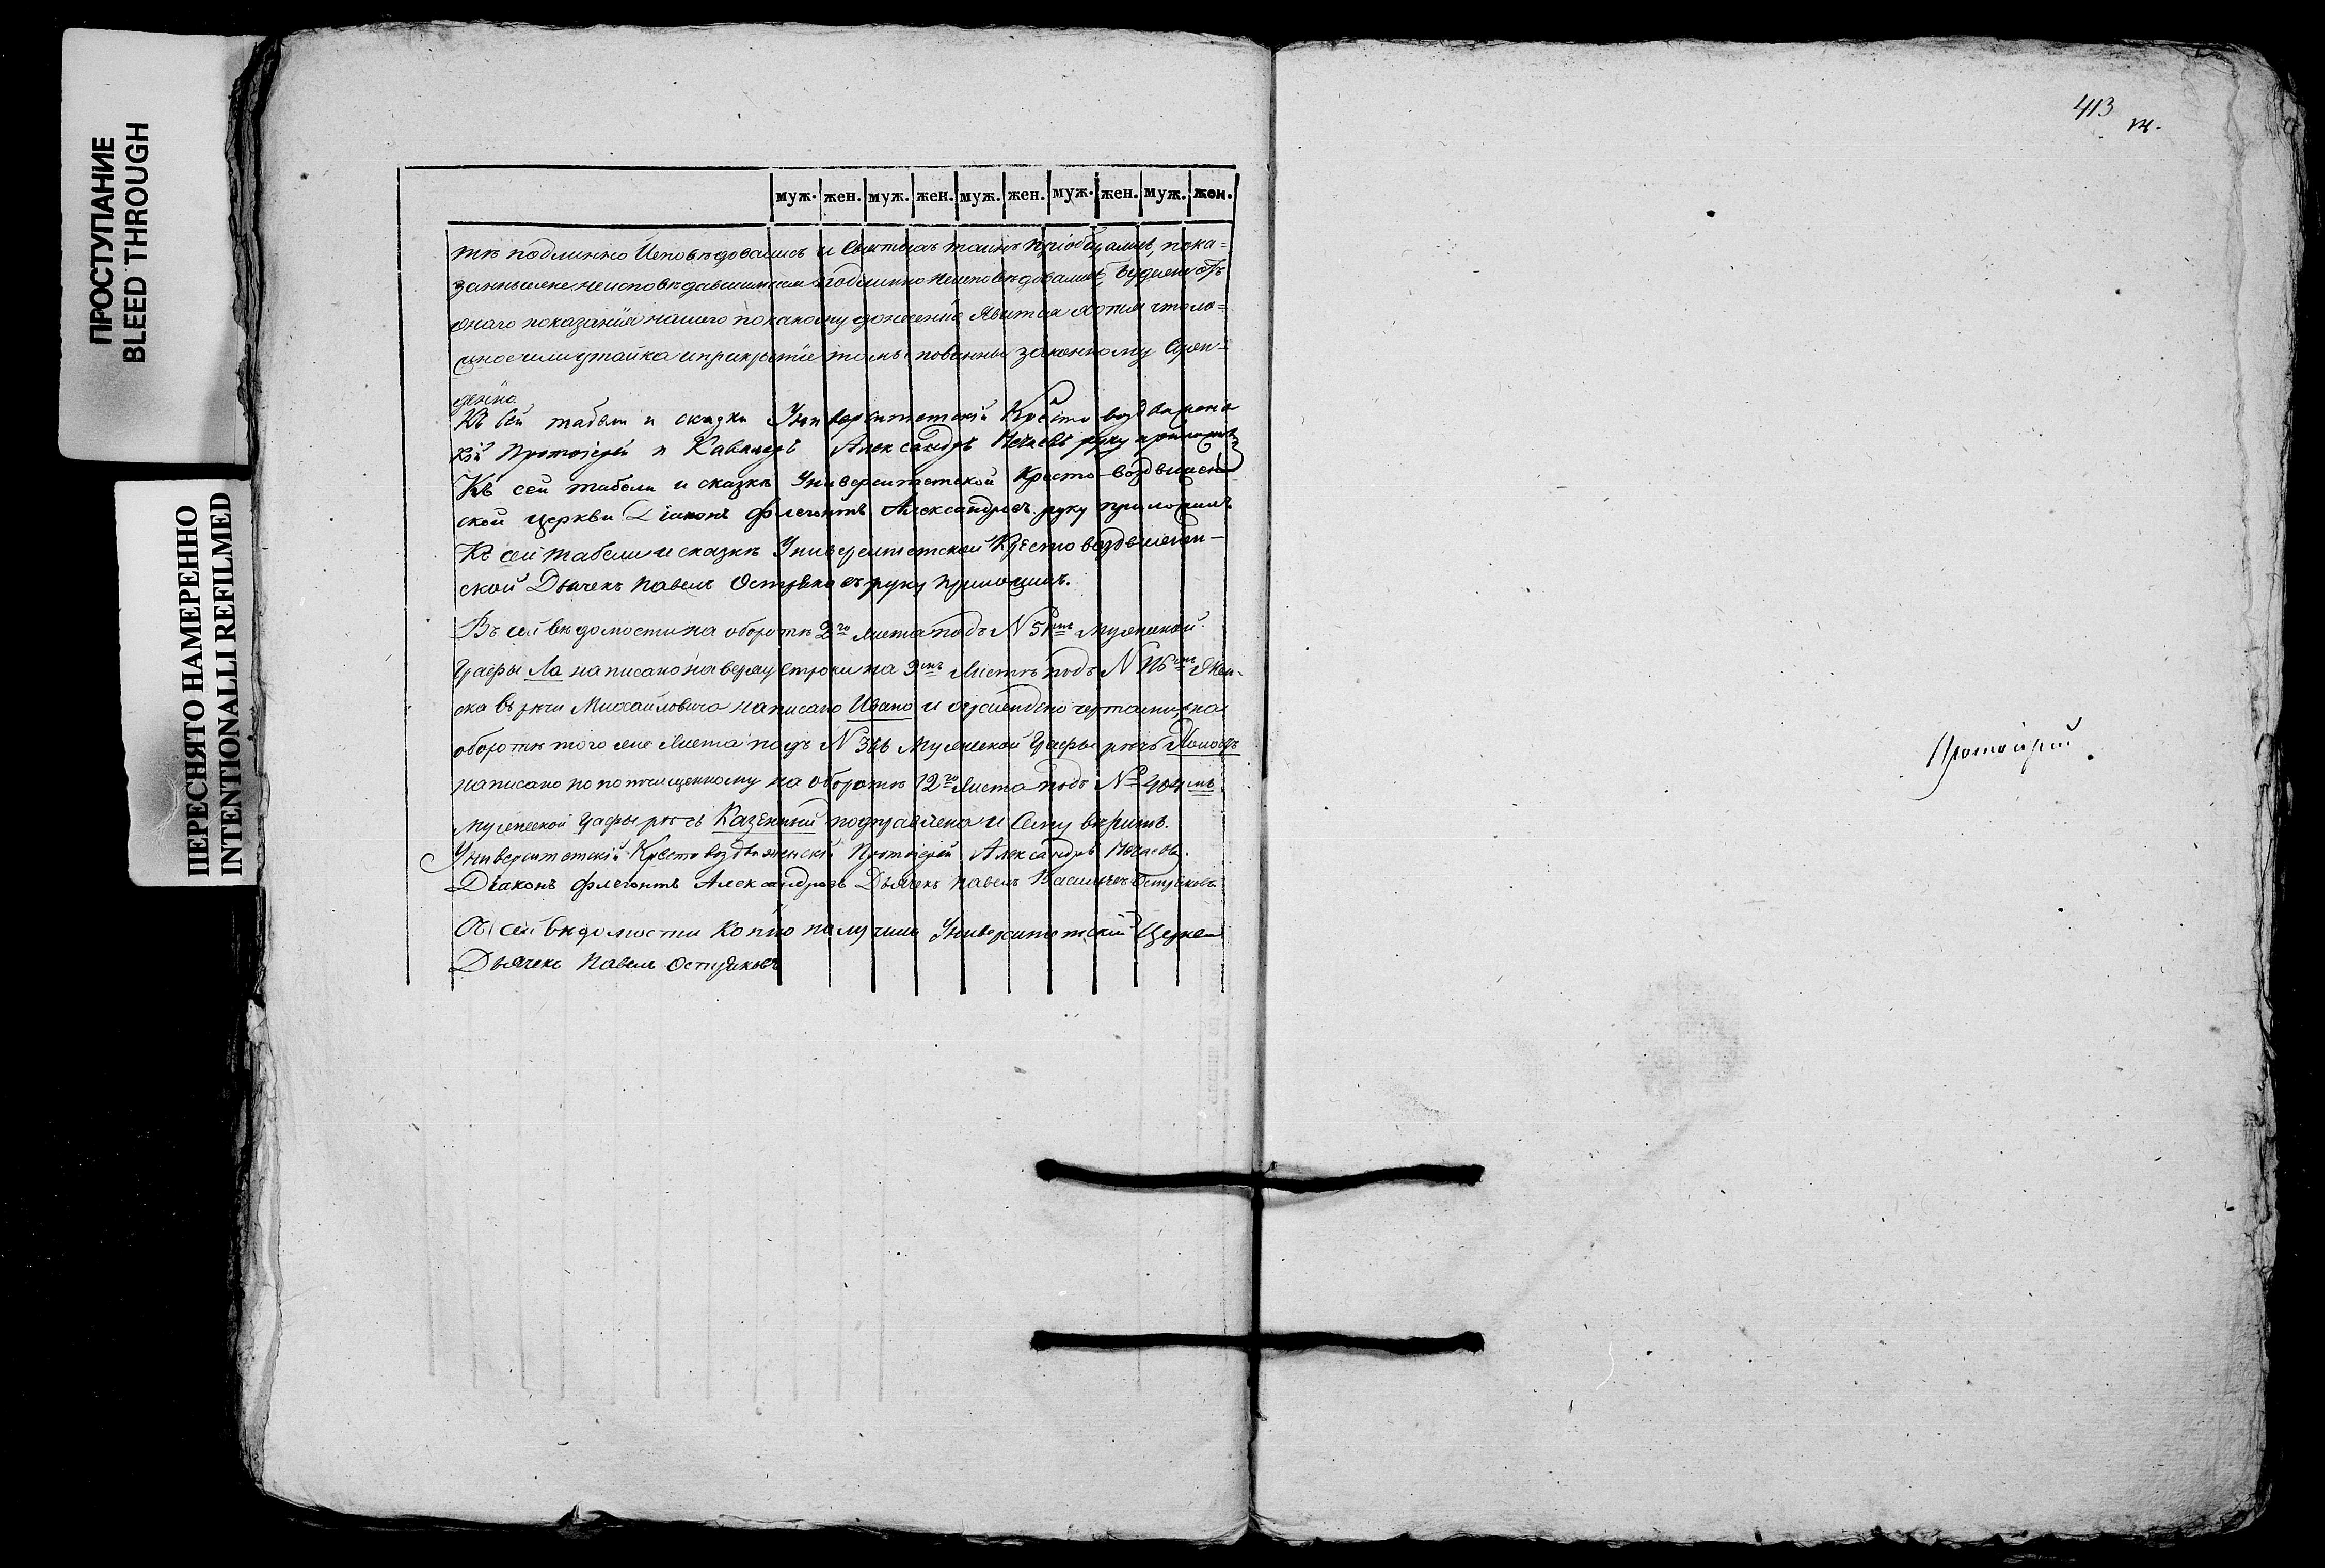 ПРОСТУПАНИЕ
BLEED THROUGH
ПЕРЕСНЯТО НАМЕРЕННО
INTENTIONALLI REFILMED
муж. жен. муж. жен. муж. жен. муж. жен. муж. жен.
тѣ подлинно Исповѣдовались и Святыхъ таинъ пріобщались, пока=
занныеже неисповѣдавшимися подлинно неисповѣдовались, буде
онаго показанїя нашего покакому донесенїю Явится хотя что ло=
жное или утайка и прикрытїе томы повинны законному Суж=
денїю
Къ сей табели и сказки Университетскій Кресто воздвижен
кій Протоіерей и Кавалеръ Александръ Нечаевъ руку приложилъ
Къ сей табели и сказкѣ Университетской Кресто-воздвижен
ской церкви Діаконъ Флегонтъ Александровъ руку приложилъ
Къ сей табели и сказкѣ Университетской Крестовоздвижен-
ской Дьячекъ Павелъ Остряковъ руку приложилъ.
Въ сей вѣдомости на оборотѣ 2го листа подъ N 51мъ Мужеской
Графы Ла написано на верху строки на 9мъ Листѣ подъ N Жен-
ска въ рѣчи Михайловича написано Ивано и чертами, на
оборотѣ того же Листа подъ N Мужеской Графы рѣчь
написано по почищенному на оборотѣ 12го Листа подъ № 404мъ
Мужеской Графы рѣчь Казенный подправлено и Сему вѣрить.
Университетскій Крестовоздвиженскій Протоіерей Александръ Нечаевъ.
Діаконъ Флегонтъ Александровъ Дьячекъ Павелъ Васильевъ Остряковъ.
Съ сей вѣдомости Копію получилъ Университетской Церкви
Дьячекъ Павелъ Остряковъ
413
Протоіерей